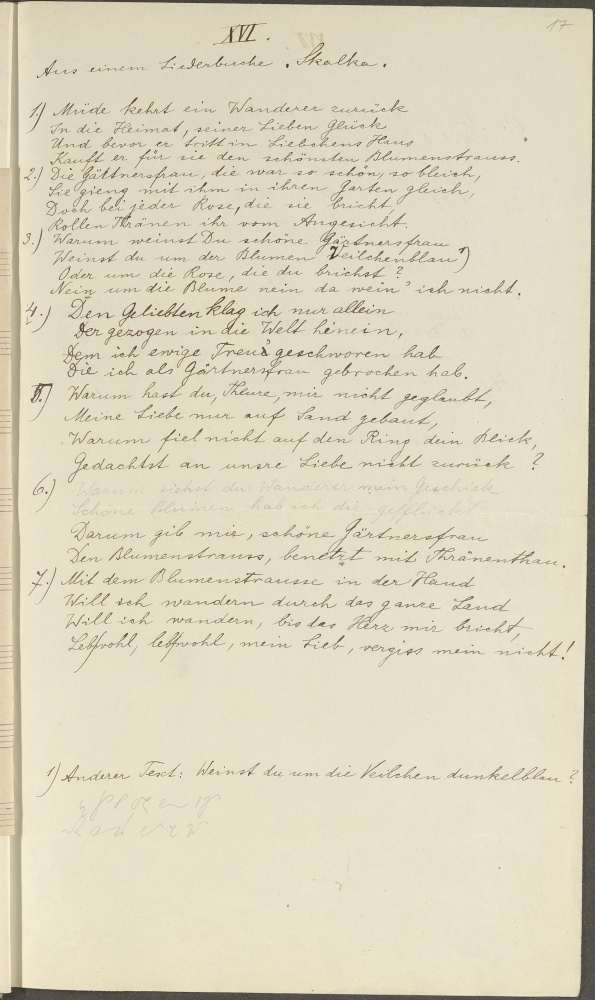 17
XVI.
Aus einem Liederbuche. Skalka.
1.) Müde kehrt ein Wanderer zurück
In die Heimat, seiner Lieben Glück
Und bevor er tritt in Liebchens Haus
Kauft er für sie den schönsten Blumenstrauss.
2.) Die Gärtnersfrau, die war so schön, so bleich,
Sie gieng mit ihm in ihren Garten gleich,
Doch bei jeder Rose, die sie bricht
Rollen Thränen ihr vom Angesicht.
3.) Warum weinst Du schöne Gärtnersfrau
Weinst du um der Blumen Veilchenblau 1)
Oder um die Rose, die du brichst?
Nein um die Blume nein da wein' ich nicht.
4.) Den Geliebten klag ich nur allein
Der gezogen in die Welt hinein,
Dem ich ewige Treu geschworen hab
Die ich als Gärtnersfrau gebrochen hab.
5.) Warum hast du, Theure, mir nicht geglaubt,
Meine Liebe nur auf Sand gebaut,
Warum fiel nicht auf den Ring dein Blick,
Gedachtst an unsre Liebe nicht zurück?
6.) Warum siehst du Wanderer mein Geschick
Schöne Blumen hab ich dir gepflückt
Darum gib mir, schöne Gärtnersfrau
Den Blumenstrauss, benetzt mit Thränenthau.
7.) Mit dem Blumenstrausse in der Hand
Will ich wandern durch das ganze Land
Will ich wandern, bis das Herz mir bricht,
Lebwohl, lebwohl, mein Lieb, vergiss mein nicht!
1) Anderer Text: Weinst du um die Veilchen dunkelblau?